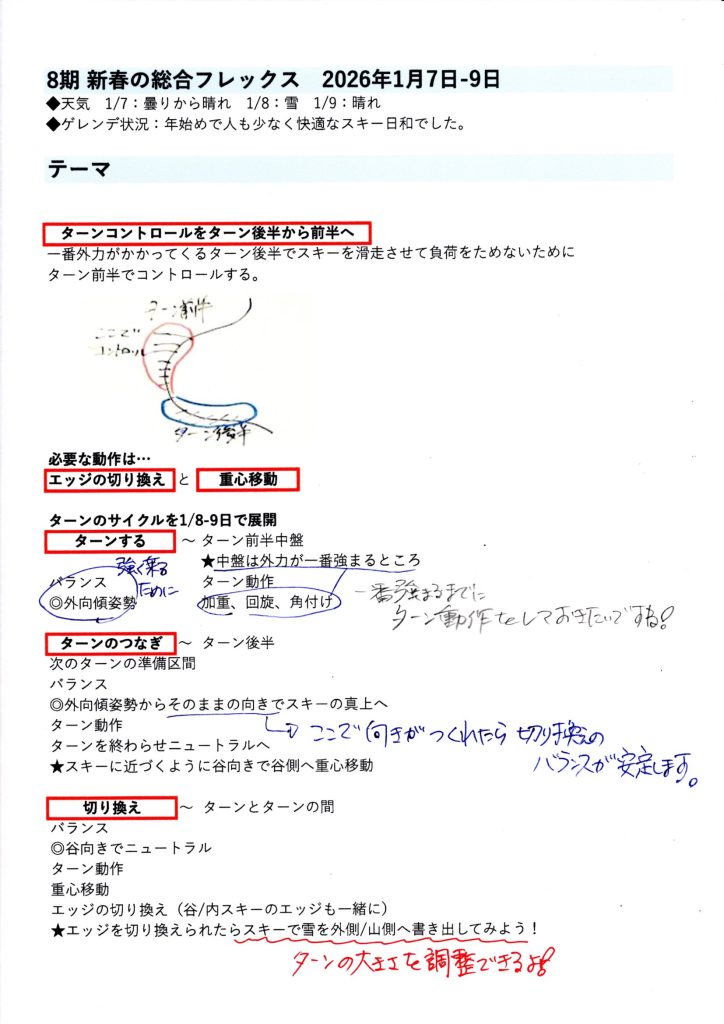 8期 新春の総合フレックス　2026年1月7日-9日
◆天気　1/7：曇りから晴れ　1/8：雪　1/9：晴れ
◆ゲレンデ状況：年始めで人も少なく快適なスキー日和でした。
テーマ
ターンコントロールをターン後半から前半へ
一番外力がかかってくるターン後半でスキーを滑走させて負荷をためないために
ターン前半でコントロールする。
ターン前半
ここで
コントロール
ターン後半
必要な動作は…
エッジの切り換え と 重心移動
ターンのサイクルを1/8-9日で展開
ターンする ～ ターン前半中盤
★中盤は外力が一番強まるところ
強く乗る
ために
バランス　ターン動作
◎外向傾姿勢　加重、回旋、角付け
一番強まるまでに
ターン動作をしておきたいですね！
ターンのつなぎ ～ ターン後半
次のターンの準備区間
バランス
◎外向傾姿勢からそのままの向きでスキーの真上へ
ターン動作
ここで向きがつくれたら切り換えの
バランスが安定します。
ターンを終わらせニュートラルへ
★スキーに近づくように谷向きで谷側へ重心移動
切り換え ～ ターンとターンの間
バランス
◎谷向きでニュートラル
ターン動作
重心移動
エッジの切り換え（谷/内スキーのエッジも一緒に）
★エッジを切り換えられたらスキーで雪を外側/山側へ書き出してみよう！
ターンの大きさを調整できるよ！